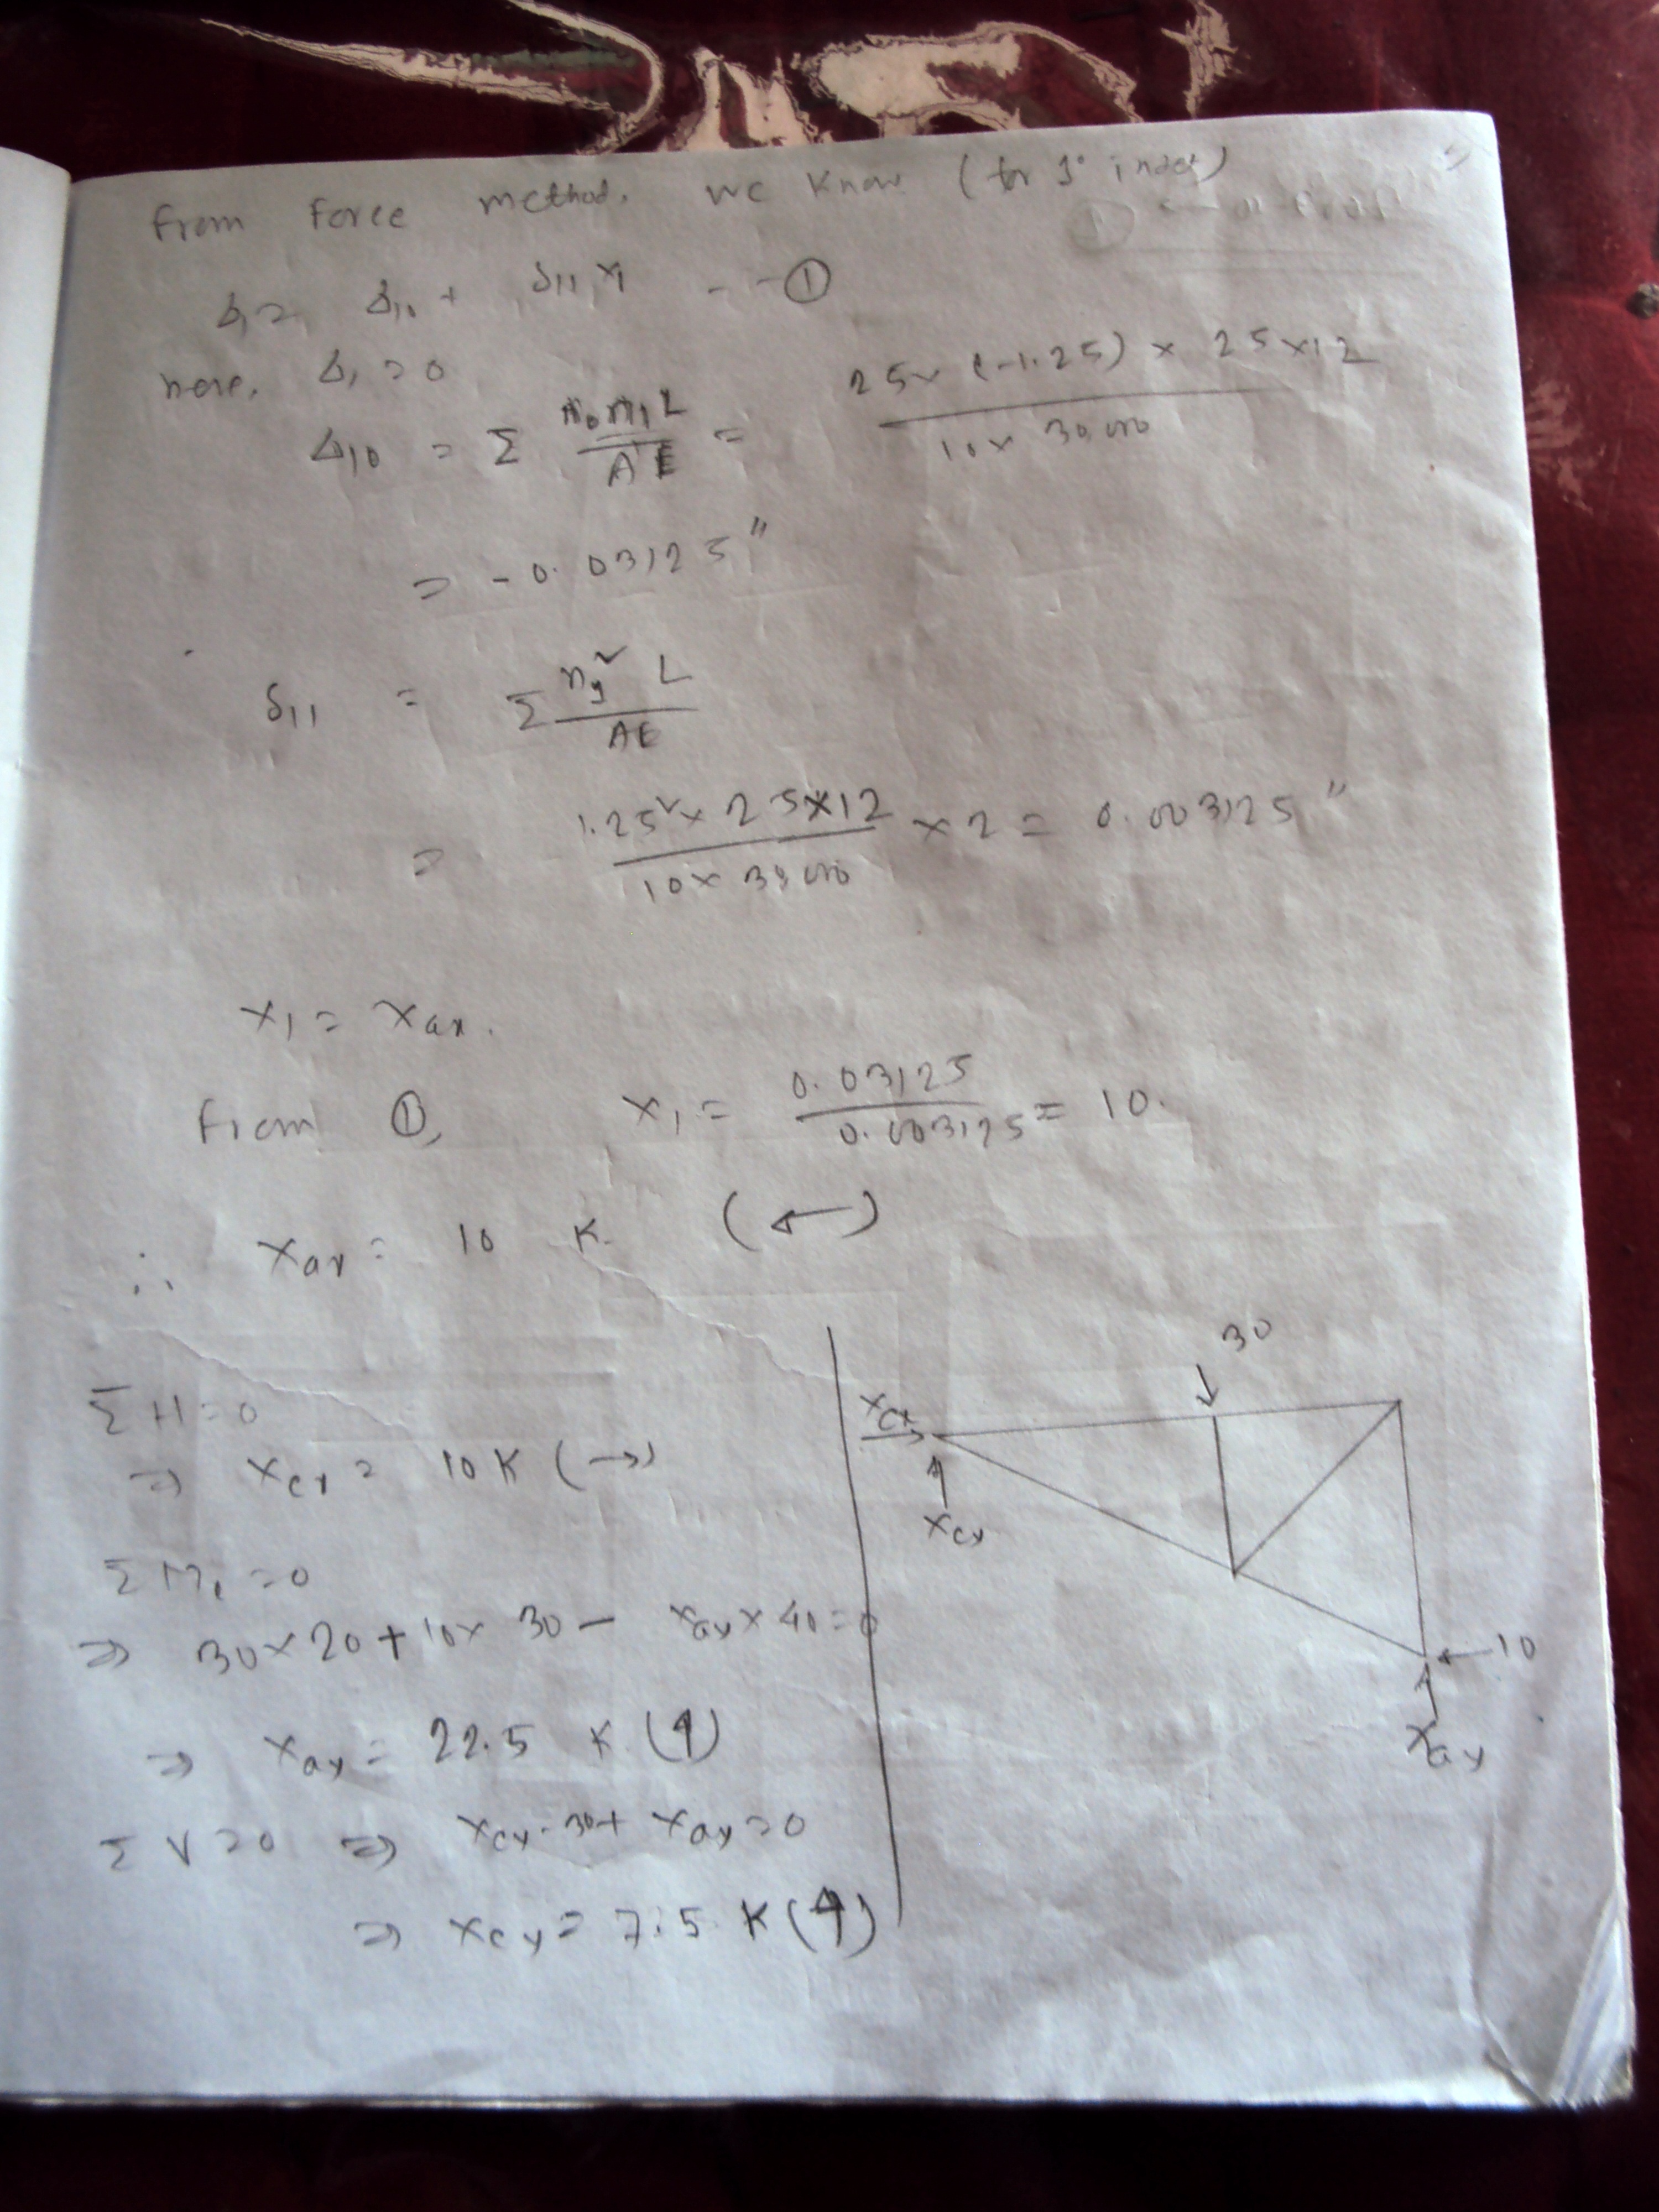 from Force method, we know (for 1° indet)
Δ₁ = Δ₁₀ + δ₁₁ x₁ - - ①
here, Δ₁ = 0
Δ₁₀ = Σ n₀n₁L / AE = 25 × (-1.25) × 25 × 12 / 10 × 30,000
= -0.03125"
δ₁₁ = Σ n₁² L / AE
= 1.25² × 25 × 12 / 10 × 30,000 × 2 = 0.003125"
x₁ = Xax.
from ①, x₁ = 0.03125 / 0.003125 = 10.
∴ Xax = 10 K. (←)
ΣH = 0
⇒ Xcx = 10 K (→)
ΣMc = 0
⇒ 30 × 20 + 10 × 30 - Xay × 40 = 0
⇒ Xay = 22.5 K (↑)
ΣV = 0 ⇒ Xcy - 30 + Xay = 0
⇒ Xcy = 7.5 K (↑)
30
Xcx
Xcy
10
Xay